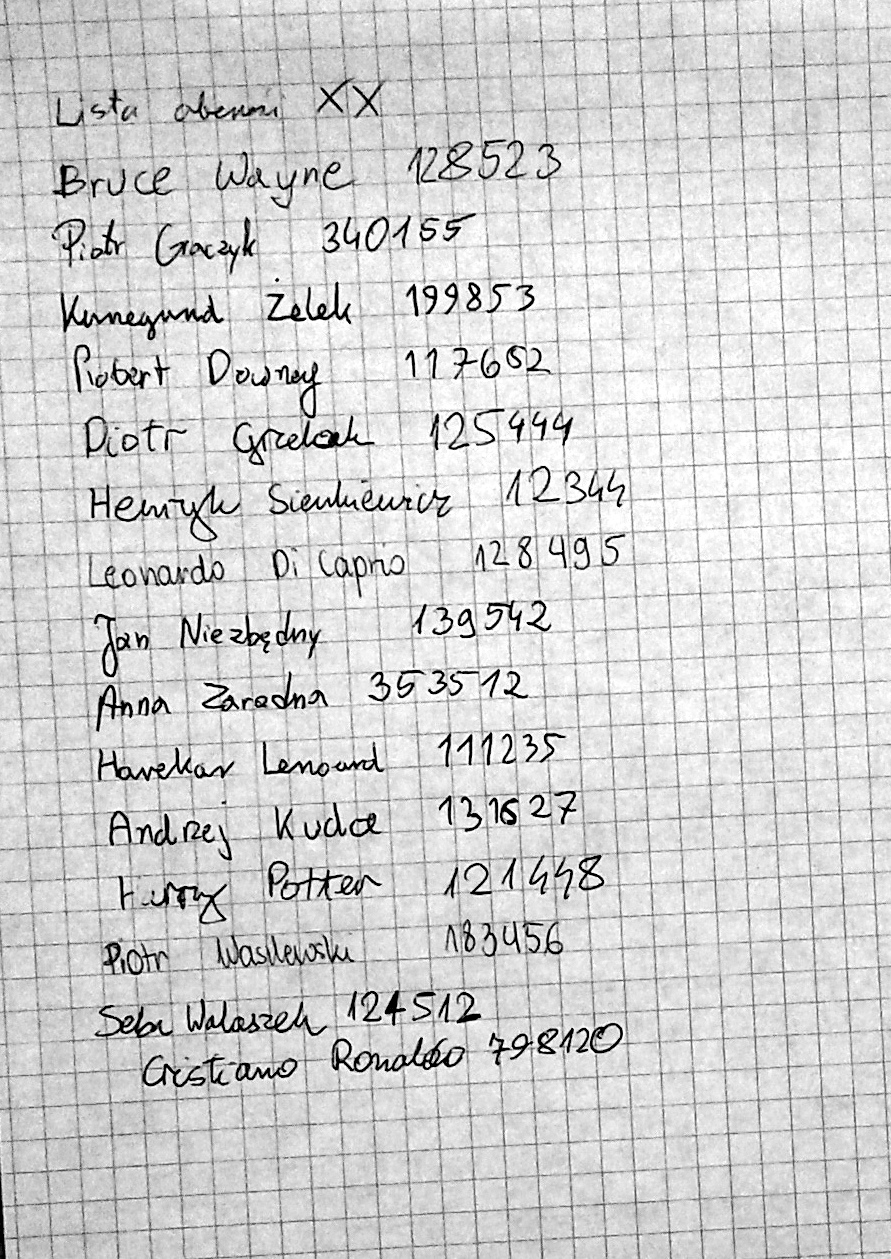 Lista obecności XX
Bruce Wayne 128523
Piotr Graczyk 340155
Kunegund Żelek 199853
Robert Downey 117652
Piotr Grzelak 125444
Henryk Sienkiewicz 12344
Leonardo Di Caprio 128495
Jan Niezbędny 139542
Anna Zaradna 353512
Havekar Lenoard 111235
Andrzej Kudce 131627
Harry Potter 121448
Piotr Wasilewski 183456
Seba Walaszek 124512
Cristiano Ronaldo 798120